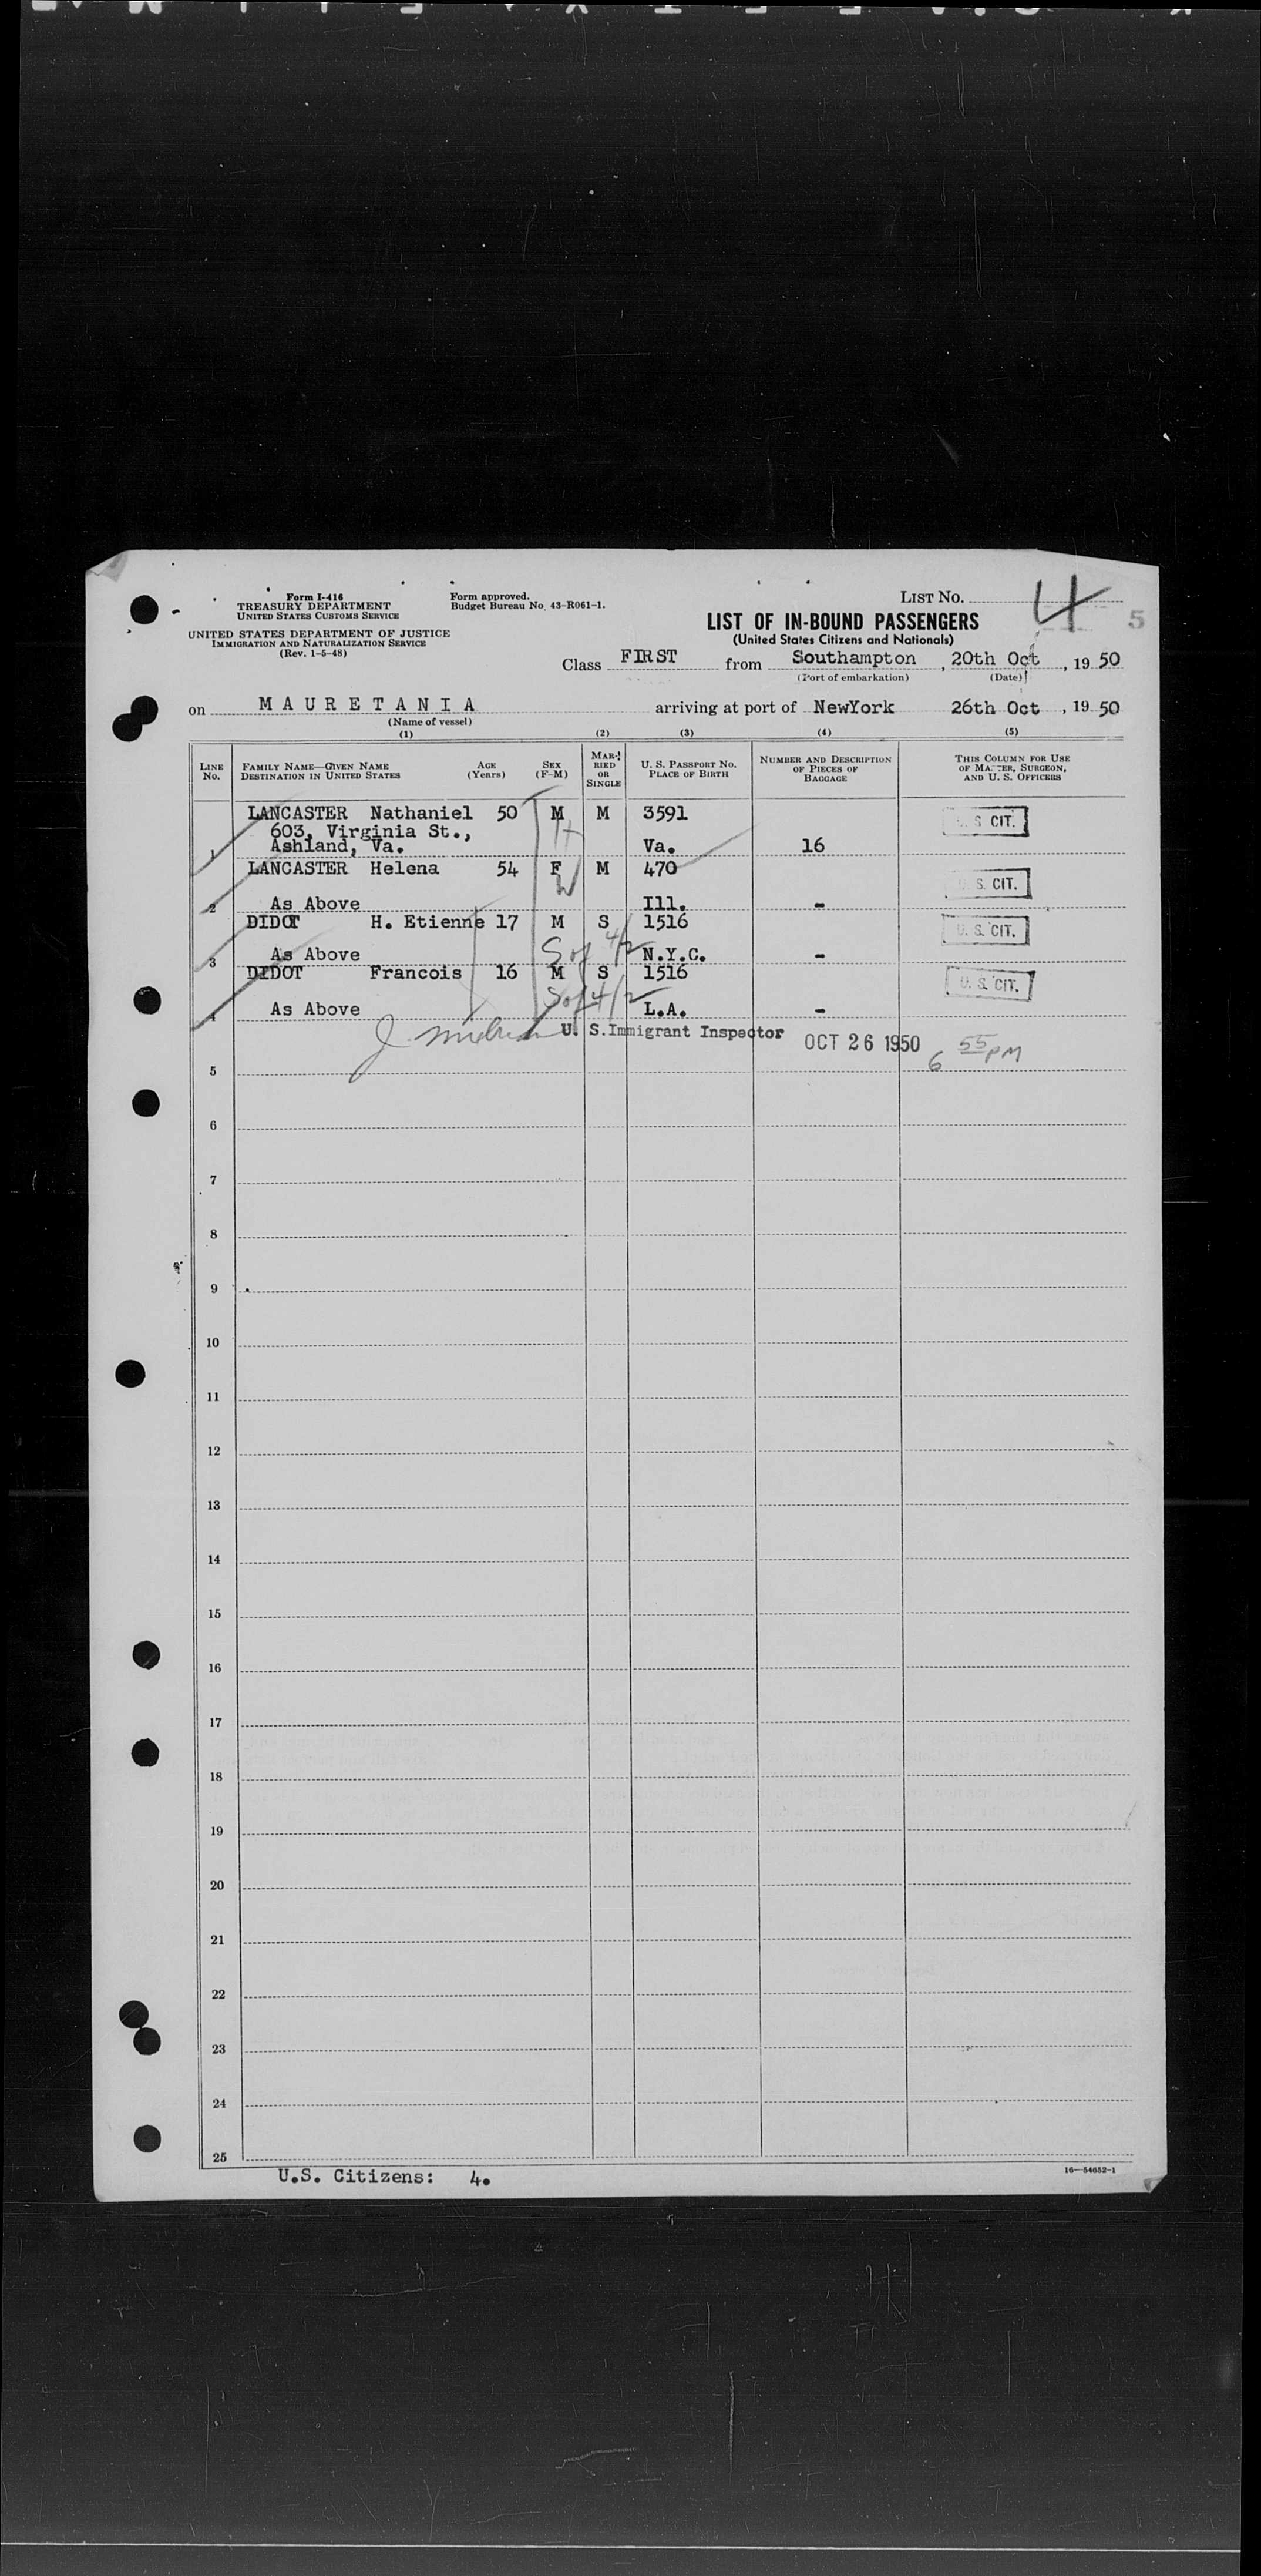 Form I-416
TREASURY DEPARTMENT
UNITED STATES CUSTOMS SERVICE
Form approved.
Budget Bureau No. 43-R061-1.
UNITED STATES DEPARTMENT OF JUSTICE
IMMIGRATION AND NATURALIZATION SERVICE
(Rev. 1-5-48)
LIST No. 4
5
LIST OF IN-BOUND PASSENGERS
(United States Citizens and Nationals)
Class FIRST from Southampton, 20th Oct, 19 50
(Port of embarkation) (Date)
on MAURETANIA arriving at port of NewYork 26th Oct, 19 50
(Name of vessel)
(1) (2) (3) (4) (5)
LINE No. FAMILY NAME—GIVEN NAME DESTINATION IN UNITED STATES AGE (Years) SEX (F-M) MARRIED OR SINGLE U. S. PASSPORT NO. PLACE OF BIRTH NUMBER AND DESCRIPTION OF PIECES OF BAGGAGE THIS COLUMN FOR USE OF MASTER, SURGEON, AND U. S. OFFICERS
LANCASTER Nathaniel 50 M M 3591 U. S. CIT.
603, Virginia St., H
1 Ashland, Va. Va. 16
LANCASTER Helena 54 F M 470 U. S. CIT.
W
2 As Above Ill. -
DIDOT H. Etienne 17 M S 1516 U. S. CIT.
S of 4/2
3 As Above N.Y.C. -
DIDOT Francois 16 M S 1516 U. S. CIT.
S of 4/2
4 As Above L.A. -
U. S. Immigrant Inspector OCT 26 1950 6 55 PM
5
6
7
8
9
10
11
12
13
14
15
16
17
18
19
20
21
22
23
24
25
U.S. Citizens: 4.
16—54652-1